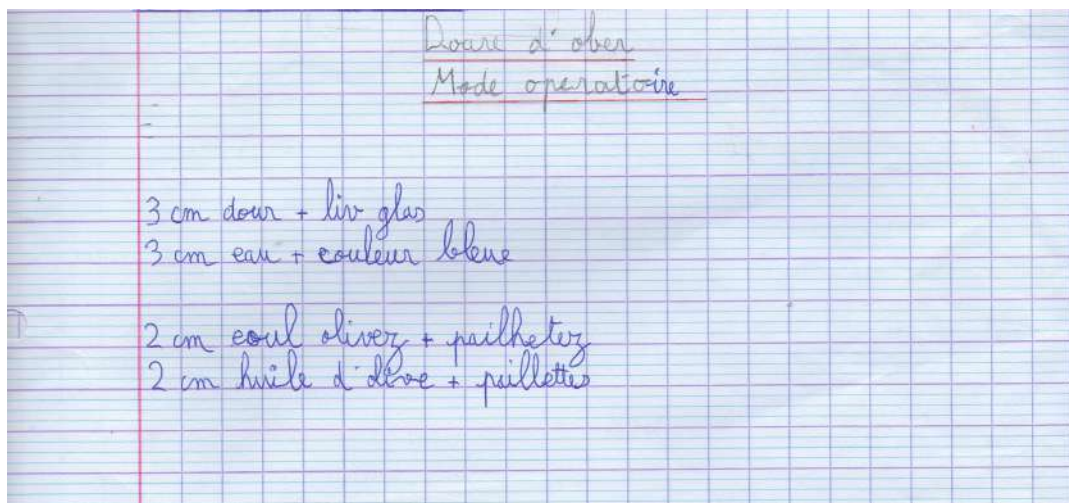 Doare d'ober
Mode operatoire
3 cm dour + liv glas
3 cm eau + couleur bleue
2 cm eoul olivez + pailhetez
2 cm huile d'olive + paillettes